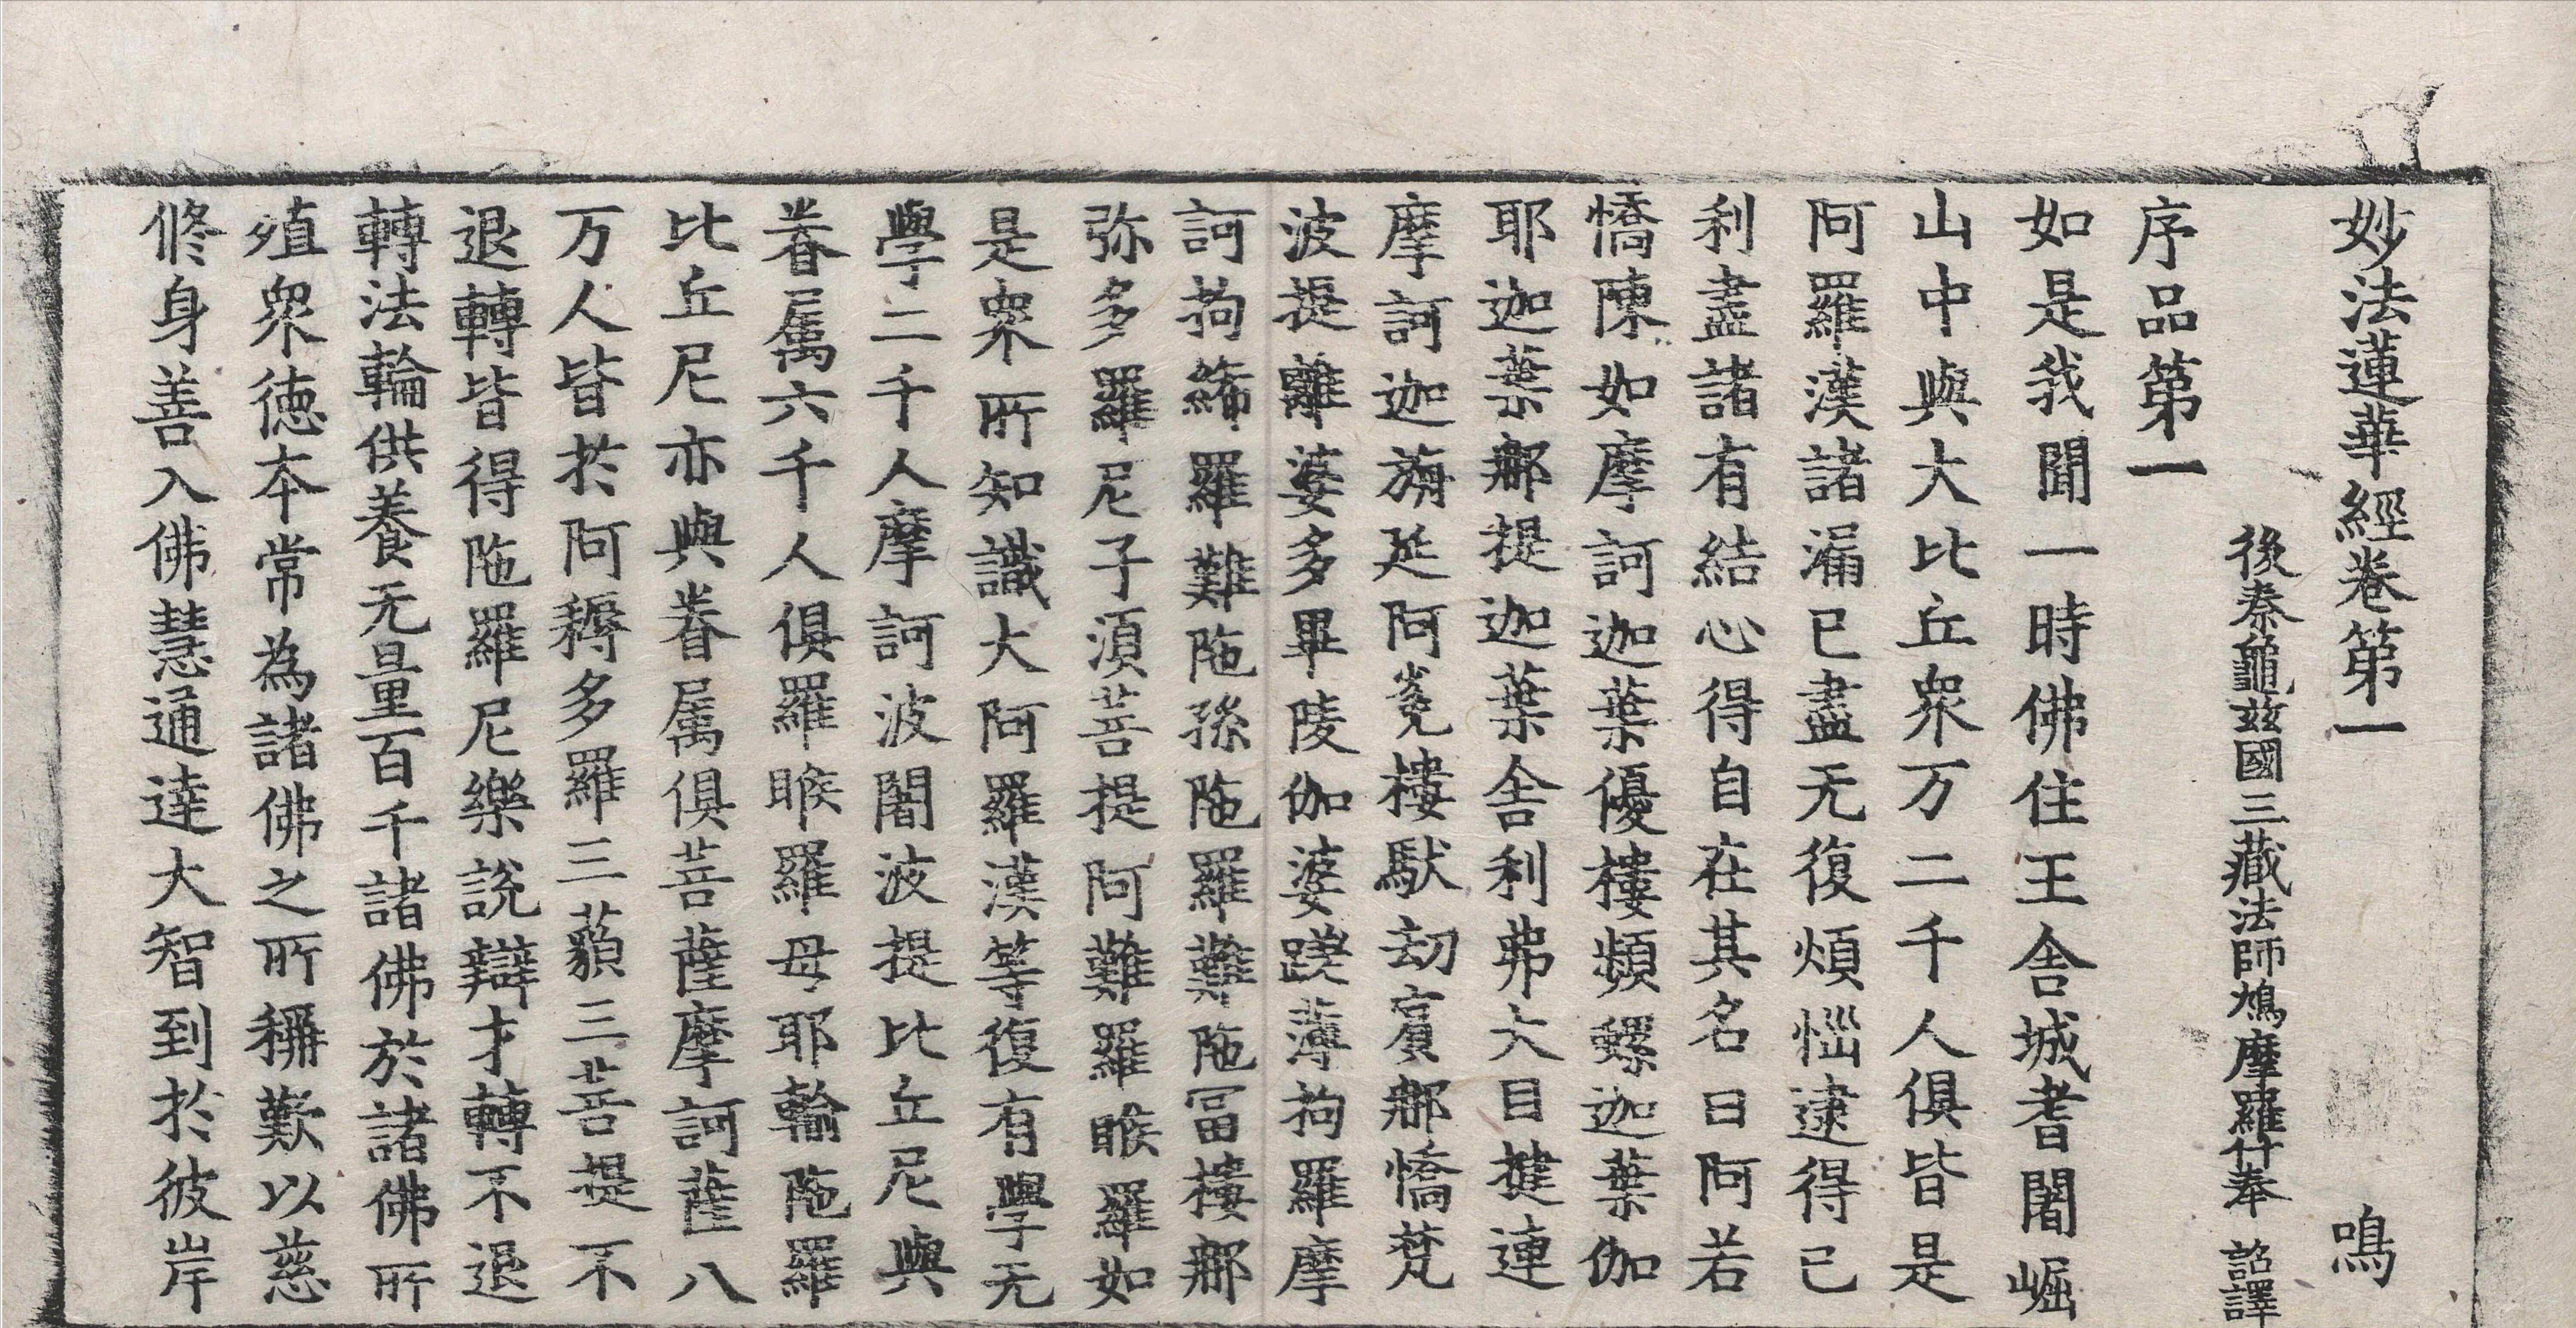 妙法蓮華經卷第一 鳴
後秦龜茲國三藏法師鳩摩羅什奉 詔譯
序品第一
如是我聞一時佛住王舍城耆闍崛
山中與大比丘衆万二千人俱皆是
阿羅漢諸漏已盡无復煩惱逮得已
利盡諸有結心得自在其名曰阿若
憍陳如摩訶迦葉優樓頻螺迦葉伽
耶迦葉那提迦葉舍利弗大目揵連
摩訶迦旃延阿㝹樓馱劫賓那憍梵
波提離婆多畢陵伽婆蹉薄拘羅摩
訶拘絺羅難陁孫陁羅難陁冨樓那
弥多羅尼子湏菩提阿難羅睺羅如
是衆所知識大阿羅漢等復有學无
學二千人摩訶波闍波提比丘尼與
眷屬六千人俱羅睺羅母耶輸陁羅
比丘尼亦與眷屬俱菩薩摩訶薩八
万人皆於阿耨多羅三藐三菩提不
退轉皆得陁羅尼樂說辯才轉不退
轉法輪供養无量百千諸佛於諸佛所
殖衆德本常為諸佛之所稱歎以慈
修身善入佛慧通達大智到於彼岸